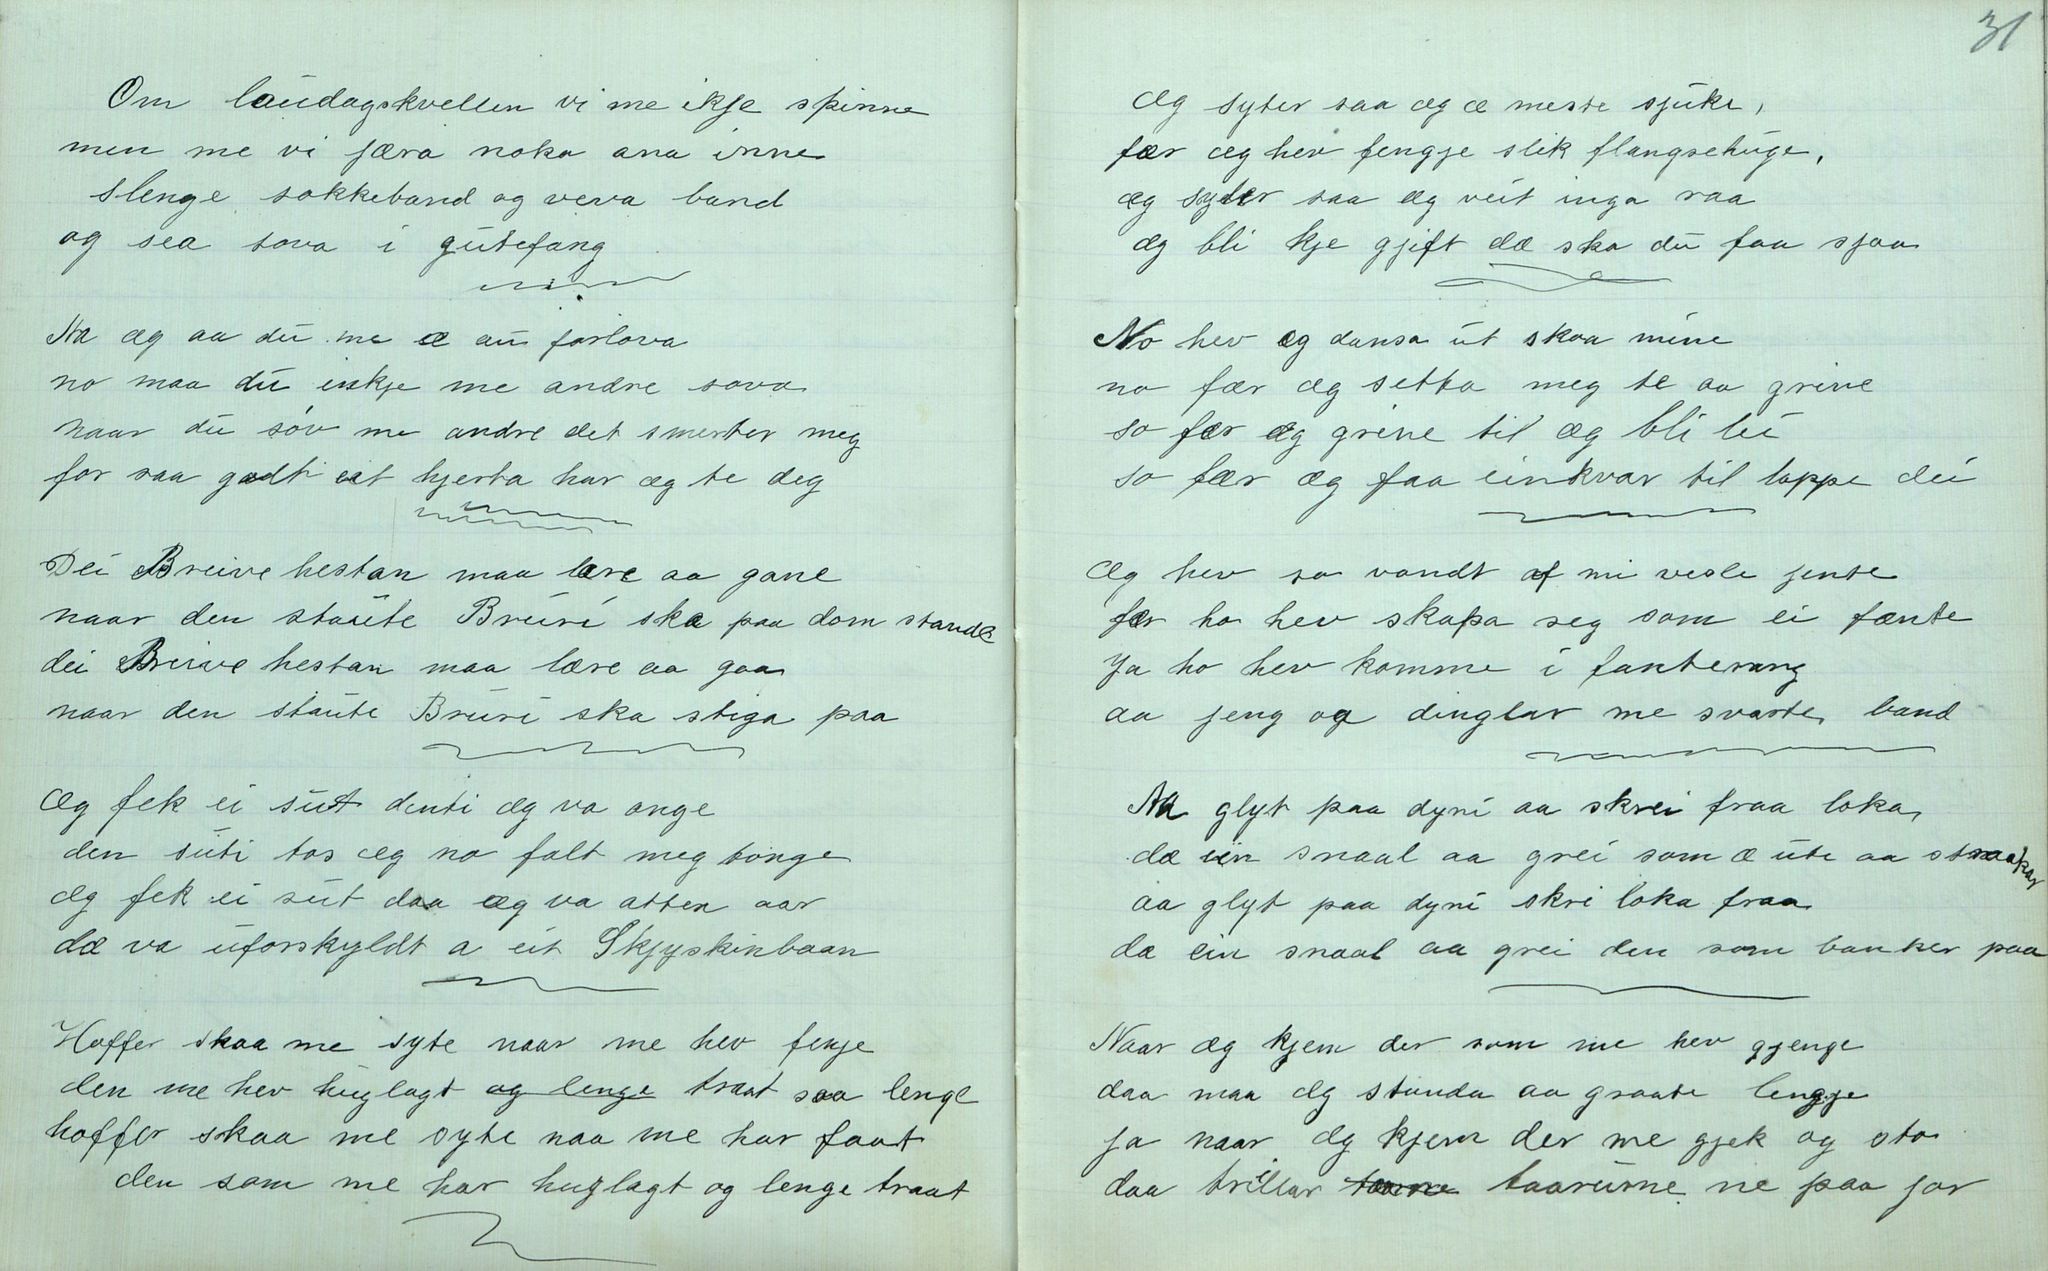 Om laudagskvellen vi me ikje spinne
men me vi jæra noko ana inne
slenge sokkeband og veva band
og sea sova i gutefang
Aa æg aa du me æ au forlova
no maa du inkje me andre sova
naar du søv me andre det smerter meg
for saa godt eit hjerta har æg te deg
Dei Breive hestan maa lære aa gane
naar den staute Bruri ska paa dom stande
dei Breive hestan maa lære aa gaa
naar den staute Bruri ska stiga paa
Æg fek ei sut denti æg va onge
den suti tos æg no falt meg tonge
Æg fek ei sut daa æg va atten aar
dæ va uforskyldt a eit Skjyskinbaan
Hoffer skaa me syte naar me hev fenje
den me hev huglagt og lenge traat saa lenge
hoffer skaa me syte naa me har faat
den som me har huglagt og lenge traat
31
Æg syter saa æg æ meste sjuke,
fær æg hev fengje slik flangsehuge,
æg syter saa æg veit inga raa
æg bli kje gjift dæ ska du faa sjaa
No hev eg dansa ut skoa mine
no fær æg setta meg te aa grine
so fær æg grine til æg bli lei
so fær æg faa einkvar til tappe dei
Æg hev so vondt af mi vesle jente
fær ho hev skapa seg som ei fænte
Ja ho hev komme i fanterang
aa jeng og dinglar me svarte band
Aa glyt paa dyni aa skrei fraa loka
dæ ein snaal aa grei som æ ute aa straakar
aa glyt paa dyni skri loka fraa
dæ ein snaal aa grei den som banker paa
Naar æg kjem der som me hev gjenge
daa maa æg standa aa graate lengje
ja naar æg kjem der me gjek og sto
daa trillar taarurne ne paa jor